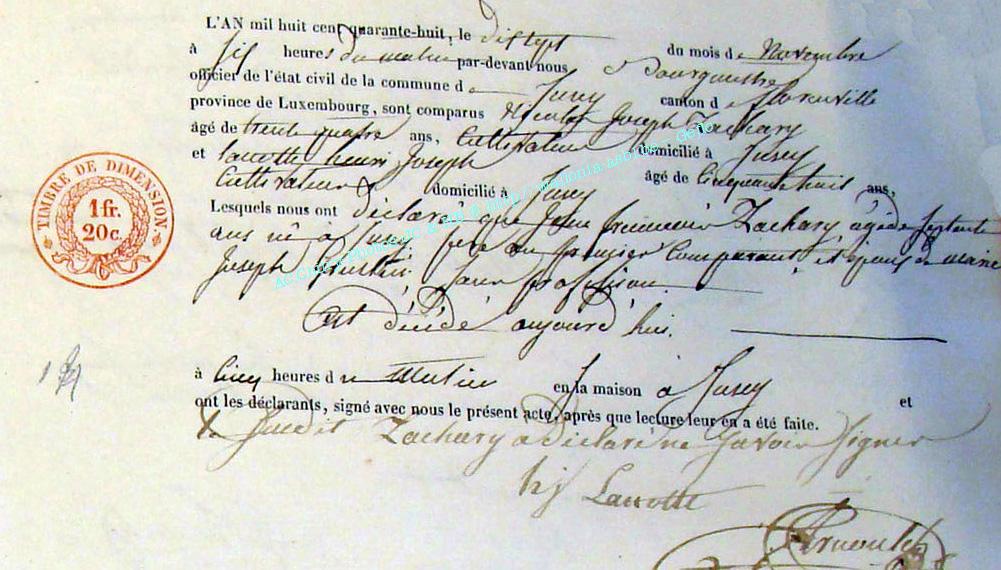 L'AN mil huit cent quarante-huit, le dix sept du mois de Novembre
à six heures du matin par-devant nous Bourgmestre
officier de l'état civil de la commune de Jusey canton de florenville
province de Luxembourg, sont comparus Nicolas Joseph Zachary
âgé de trente quatre ans, Cultivateur domicilié à Jusey
et Lacrotte henri Joseph âgé de Cinquante huit ans,
Cultivateur domicilié à Jusey
Lesquels nous ont déclaré que Jean françois Zachary agé de Septante
ans né à Jusey, père du premier Comparant, et époux de marie
Joseph, Sans profession.
Est décédé aujourd'hui.
à Cinq heures du Matin en la maison à Jusey et
ont les déclarants, signé avec nous le présent acte, après que lecture leur en a été faite.
Ledit Zachary a Déclaré ne Savoir Signer
hj Lacrotte
Arnould
TIMBRE DE DIMENSION
1 fr.
20 c.